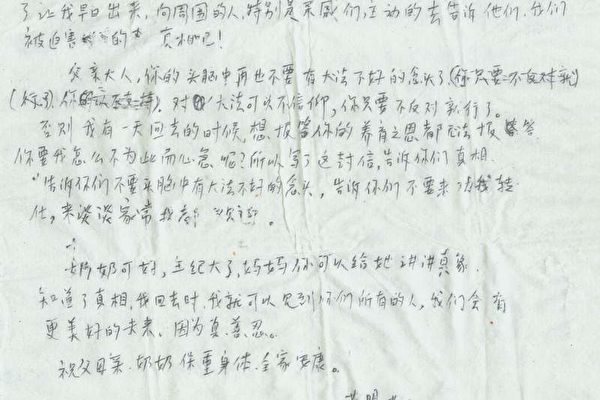 了让我早日出来，向周围的人，特别是亲戚们，主动的去告诉他们，我们
被迫害的真相吧！
父亲大人，你的头脑中再也不要有大法不好的念头了，(你只要不反对就
对大法可以不信仰，你只要不反对就行了。
否则我有一天回去的时候，想报答你的养育之恩都无法报答
你要我怎么不为此而心急呢？所以写了这封信，告诉你们真相
"告诉你们不要头脑中有大法不好的念头，告诉你们不要来"转
化，来谈谈家常我
奶奶可好，年纪大了，妈妈你可以给她讲讲真象.
知道了真相，我回去时，我就可以见到你们所有的人，我们会有
更美好的未来，因为真、善、忍。
祝父母亲.奶奶保重身体.全家安康。